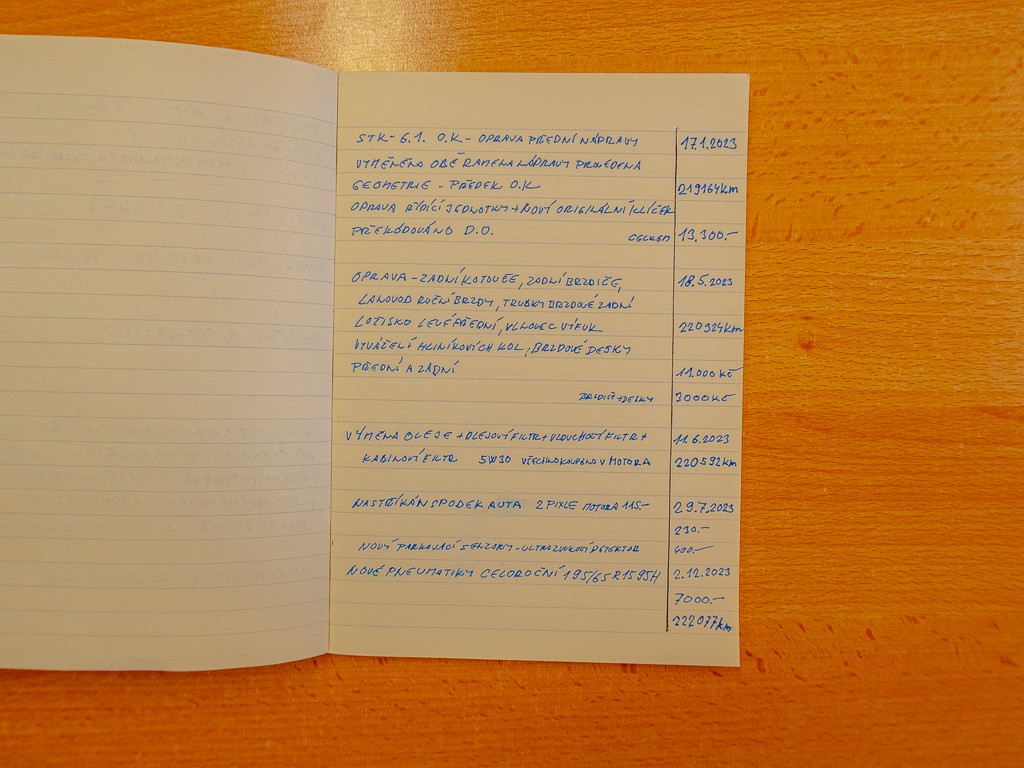 STK - 6.1. O.K - OPRAVA PŘEDNÍ NÁPRAVY 17.1.2023
VYMĚNĚNA OBĚ RAMENA NÁPRAVY PROVEDENA
GEOMETRIE - PŘEDEK O.K 219164km
OPRAVA ŘÍDÍCÍ JEDNOTKY + NOVÍ ORIGINÁLNÍ KLÍČEK
PŘEKÓDOVÁNO D.O. CELKEM 13.300.-
OPRAVA - ZADNÍ KOTOUČE, ZADNÍ BRZDIČE, 18.5.2023
LANOVOD RUČNÍ BRZDY, TRUBKY BRZDOVÉ ZADNÍ
LOŽISKO LEVÉ PŘEDNÍ, VLNOVEC VÝFUK 220324km
VYVÁŽENÍ HLINÍKOVÍCH KOL, BRZDOVÉ DESKY
PŘEDNÍ A ZÁDNÍ 11.000 Kč
BRZDIČ+DESKY 3000 Kč
VÝMĚNA OLEJE + OLEJOVÍ FILTR + VZDUCHOVÍ FILTR + 11.6.2023
KABINOVÍ FILTR 5W30 VŠECHNO KOUPENO V MOTORA 220592km
NASTŘÍKÁN SPODEK AUTA 2 PIXLE MOTORA 115.- 29.7.2023
230.-
NOVÝ PARKOVACÍ SENZORY - ULTRAZVUKOVÍ DETEKTOR 400.-
NOVÉ PNEUMATIKY CELOROČNÍ 195/65 R15 95H 2.12.2023
7000.-
222077km